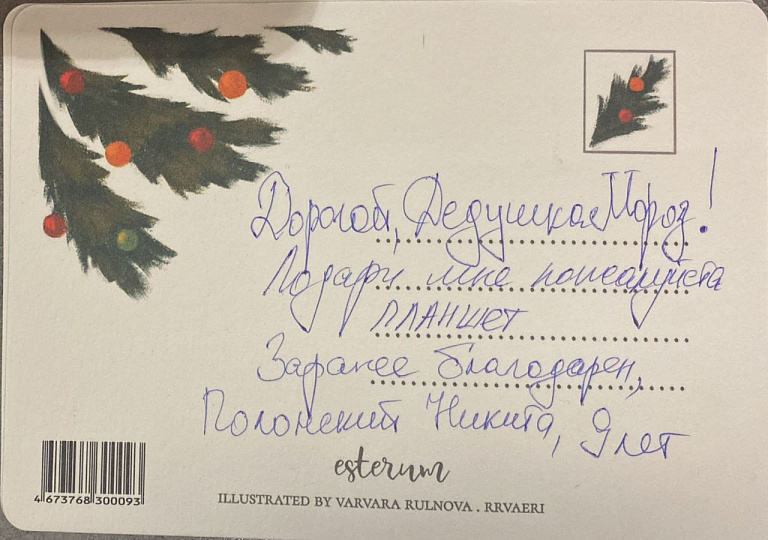 Дорогой, Дедушка Мороз!
Подари мне пожалуйста
ПЛАНШЕТ
Заранее благодарен,
Полонский Никита, 9 лет
esterum
4 673768 300093
ILLUSTRATED BY VARVARA RULNOVA . RRVAERI